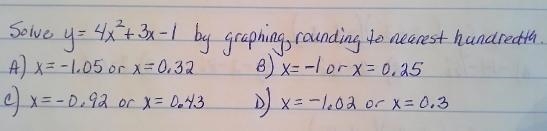 Solve y = 4x² + 3x - 1 by graphing, rounding to nearest hundredth.
A) x = -1.05 or x = 0.32 B) x = -1 or x = 0.25
C) x = -0.92 or x = 0.43 D) x = -1.02 or x = 0.3